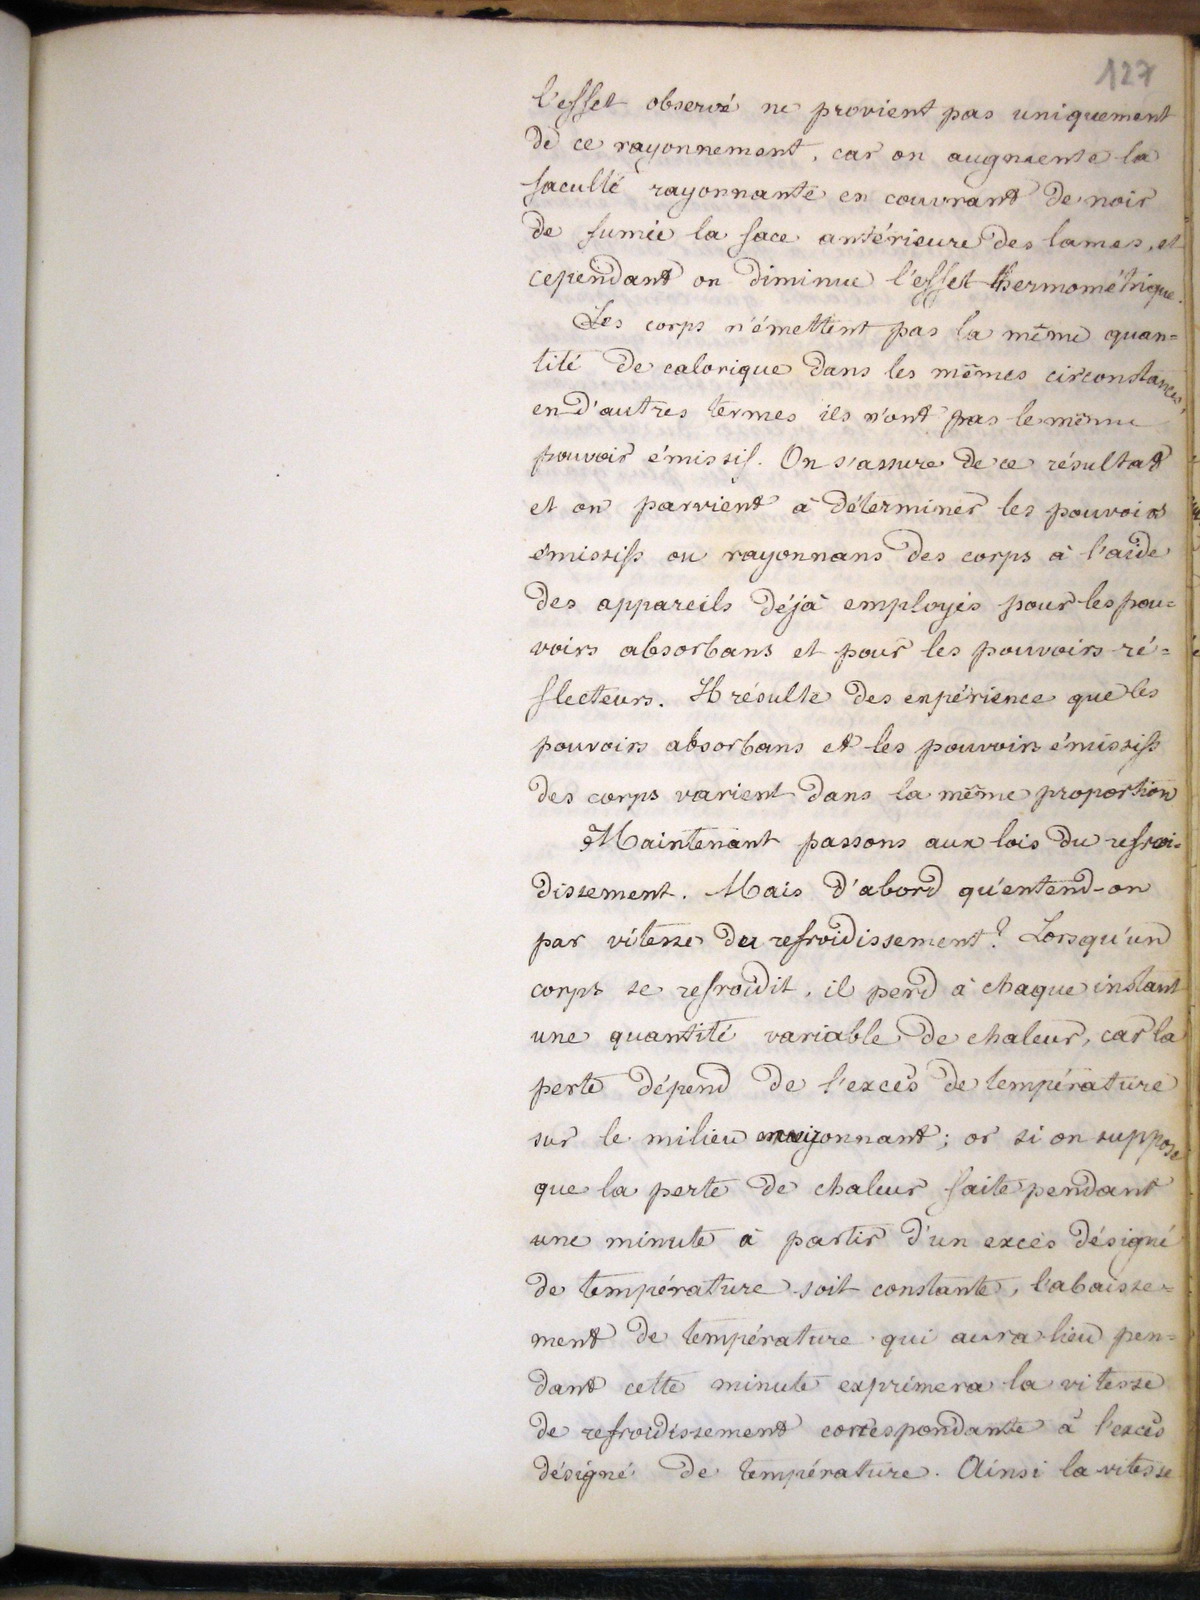 127
l'effet observé ne provient pas uniquement
de ce rayonnement, car on augmente la
faculté rayonnante en couvrant de noir
de fumée la face antérieure des lames, et
cependant on diminue l'effet thermométrique.
Les corps n'émettent pas la même quan=
tité de calorique dans les mêmes circonstances,
en d'autres termes ils n'ont pas le même
pouvoir émissif. On s'assure de ce résultat
et on parvient à déterminer les pouvoirs
émissifs ou rayonnans des corps à l'aide
des appareils déjà employés pour les pou=
voirs absorbans et pour les pouvoirs ré=
flecteurs. Il résulte des expérience que les
pouvoirs absorbans et les pouvoirs émissifs
des corps varient dans la même proportion
Maintenant passons aux lois du refroi=
dissement. Mais d'abord qu'entend-on
par vitesse du refroidissement? Lorsqu'un
corps se refroidit, il perd à chaque instant
une quantité variable de chaleur, car la
perte dépend de l'excès de température
sur le milieu ; or si on suppose
que la perte de chaleur faite pendant
une minute à partir d'un excès désigné
de température soit constante, l'abaisse=
ment de température qui aura lieu pen=
dant cette minute exprimera la vitesse
de refroidissement correspondante à l'excès
désigné de température. Ainsi la vitesse